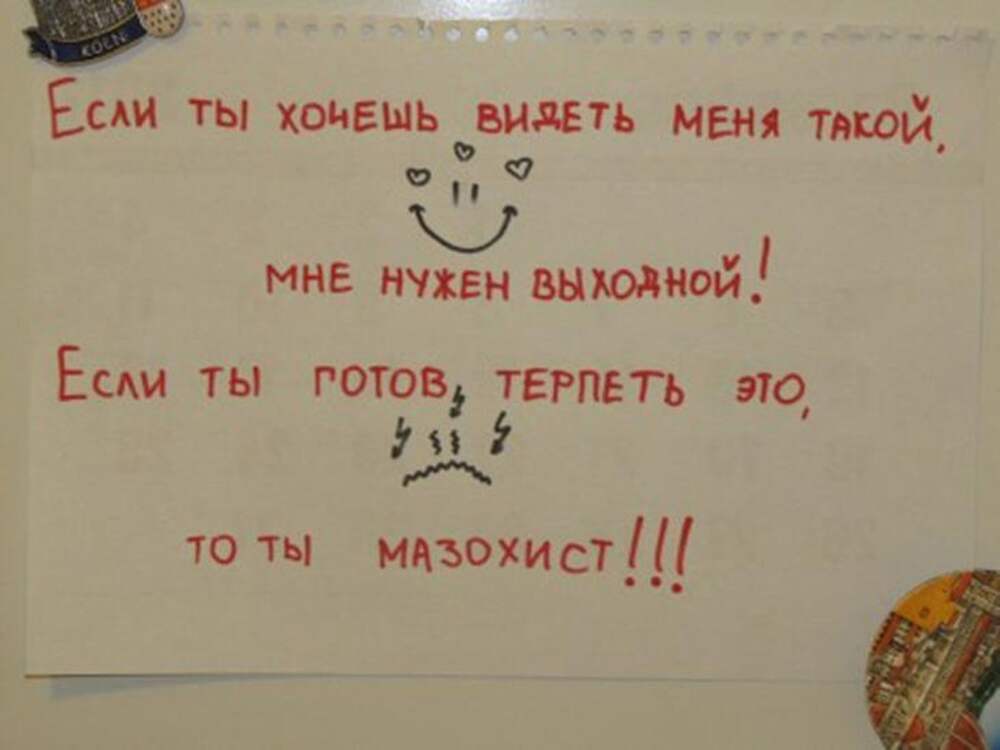 KÖLN
Если ты хочешь видеть меня такой,
мне нужен выходной!
Если ты готов терпеть это,
то ты мазохист!!!